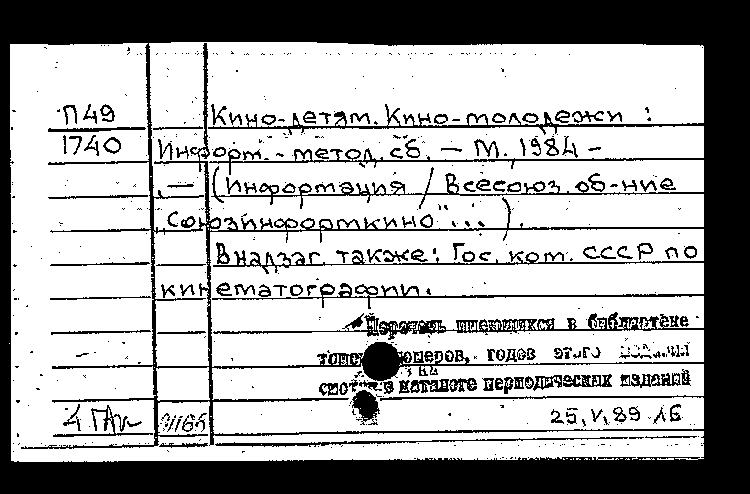 П49 Кино-детям. Кино-молодежи :
1740 Информ.-метод. сб. — М., 1984 -
. — (Информация / Всесоюз. об-ние
„Союзинформкино"...).
В надзаг. также: Гос. ком. СССР по
кинематографии.
Перечень имеющихся в библиотеке
томов, номеров, годов этого издания
смотри в каталоге периодических изданий
25.V.89 ЛБ